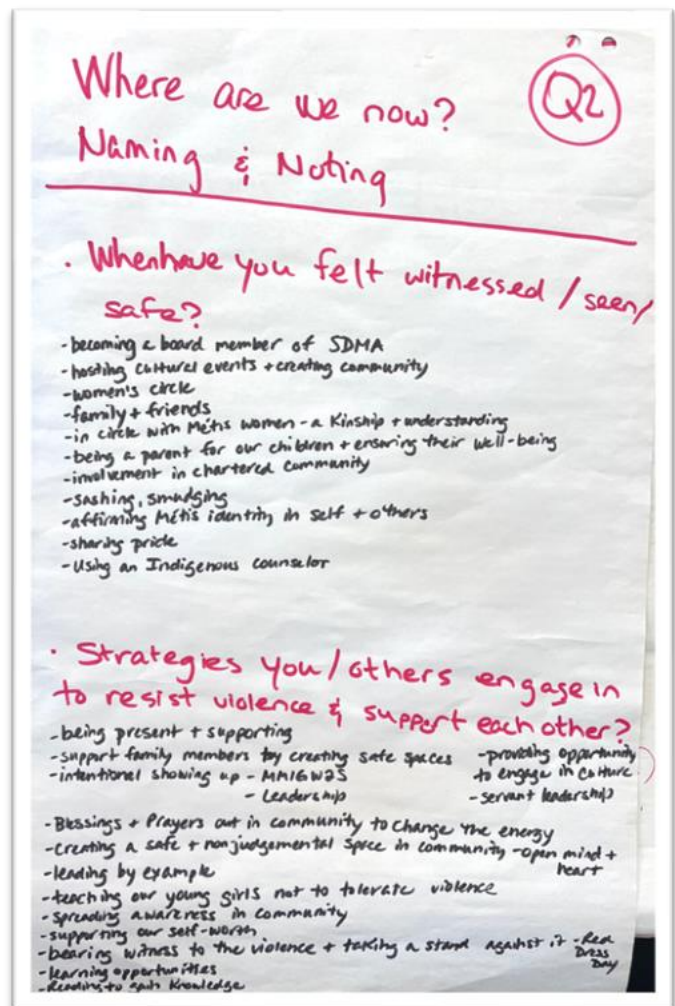 Where are we now?
Q2
Naming & Noting
. Whenhave you felt witnessed / seen/
safe?
-becoming a board member of SDMA
-hosting cultural events + creating community
-women's circle
-family + friends
-in circle with Métis women - a Kinship + understanding
-being a parent for our children + ensuring their well-being
-involvement in chartered community
-sashing, smudging
-affirming Métis identity in self + others
-sharing pride
-Using an Indigenous counselor
· Strategies you/others engage in
to resist violence & support each other?
-being present + supporting
-support family members by creating safe spaces
-intentional showing up - MMIGW2S
- Leadership
-providing opportunity
to engage in culture
-servant leadership
-Blessings + Prayers out in community to change the energy
-creating a safe + nonjudgemental space in community -open mind +
heart
-leading by example
-teaching our young girls not to tolerate violence
-spreading awareness in community
-supporting our self-worth
-bearing witness to the violence + taking a stand against it -Red
Dress
Day
-learning opportunities
-Reading to gain knowledge